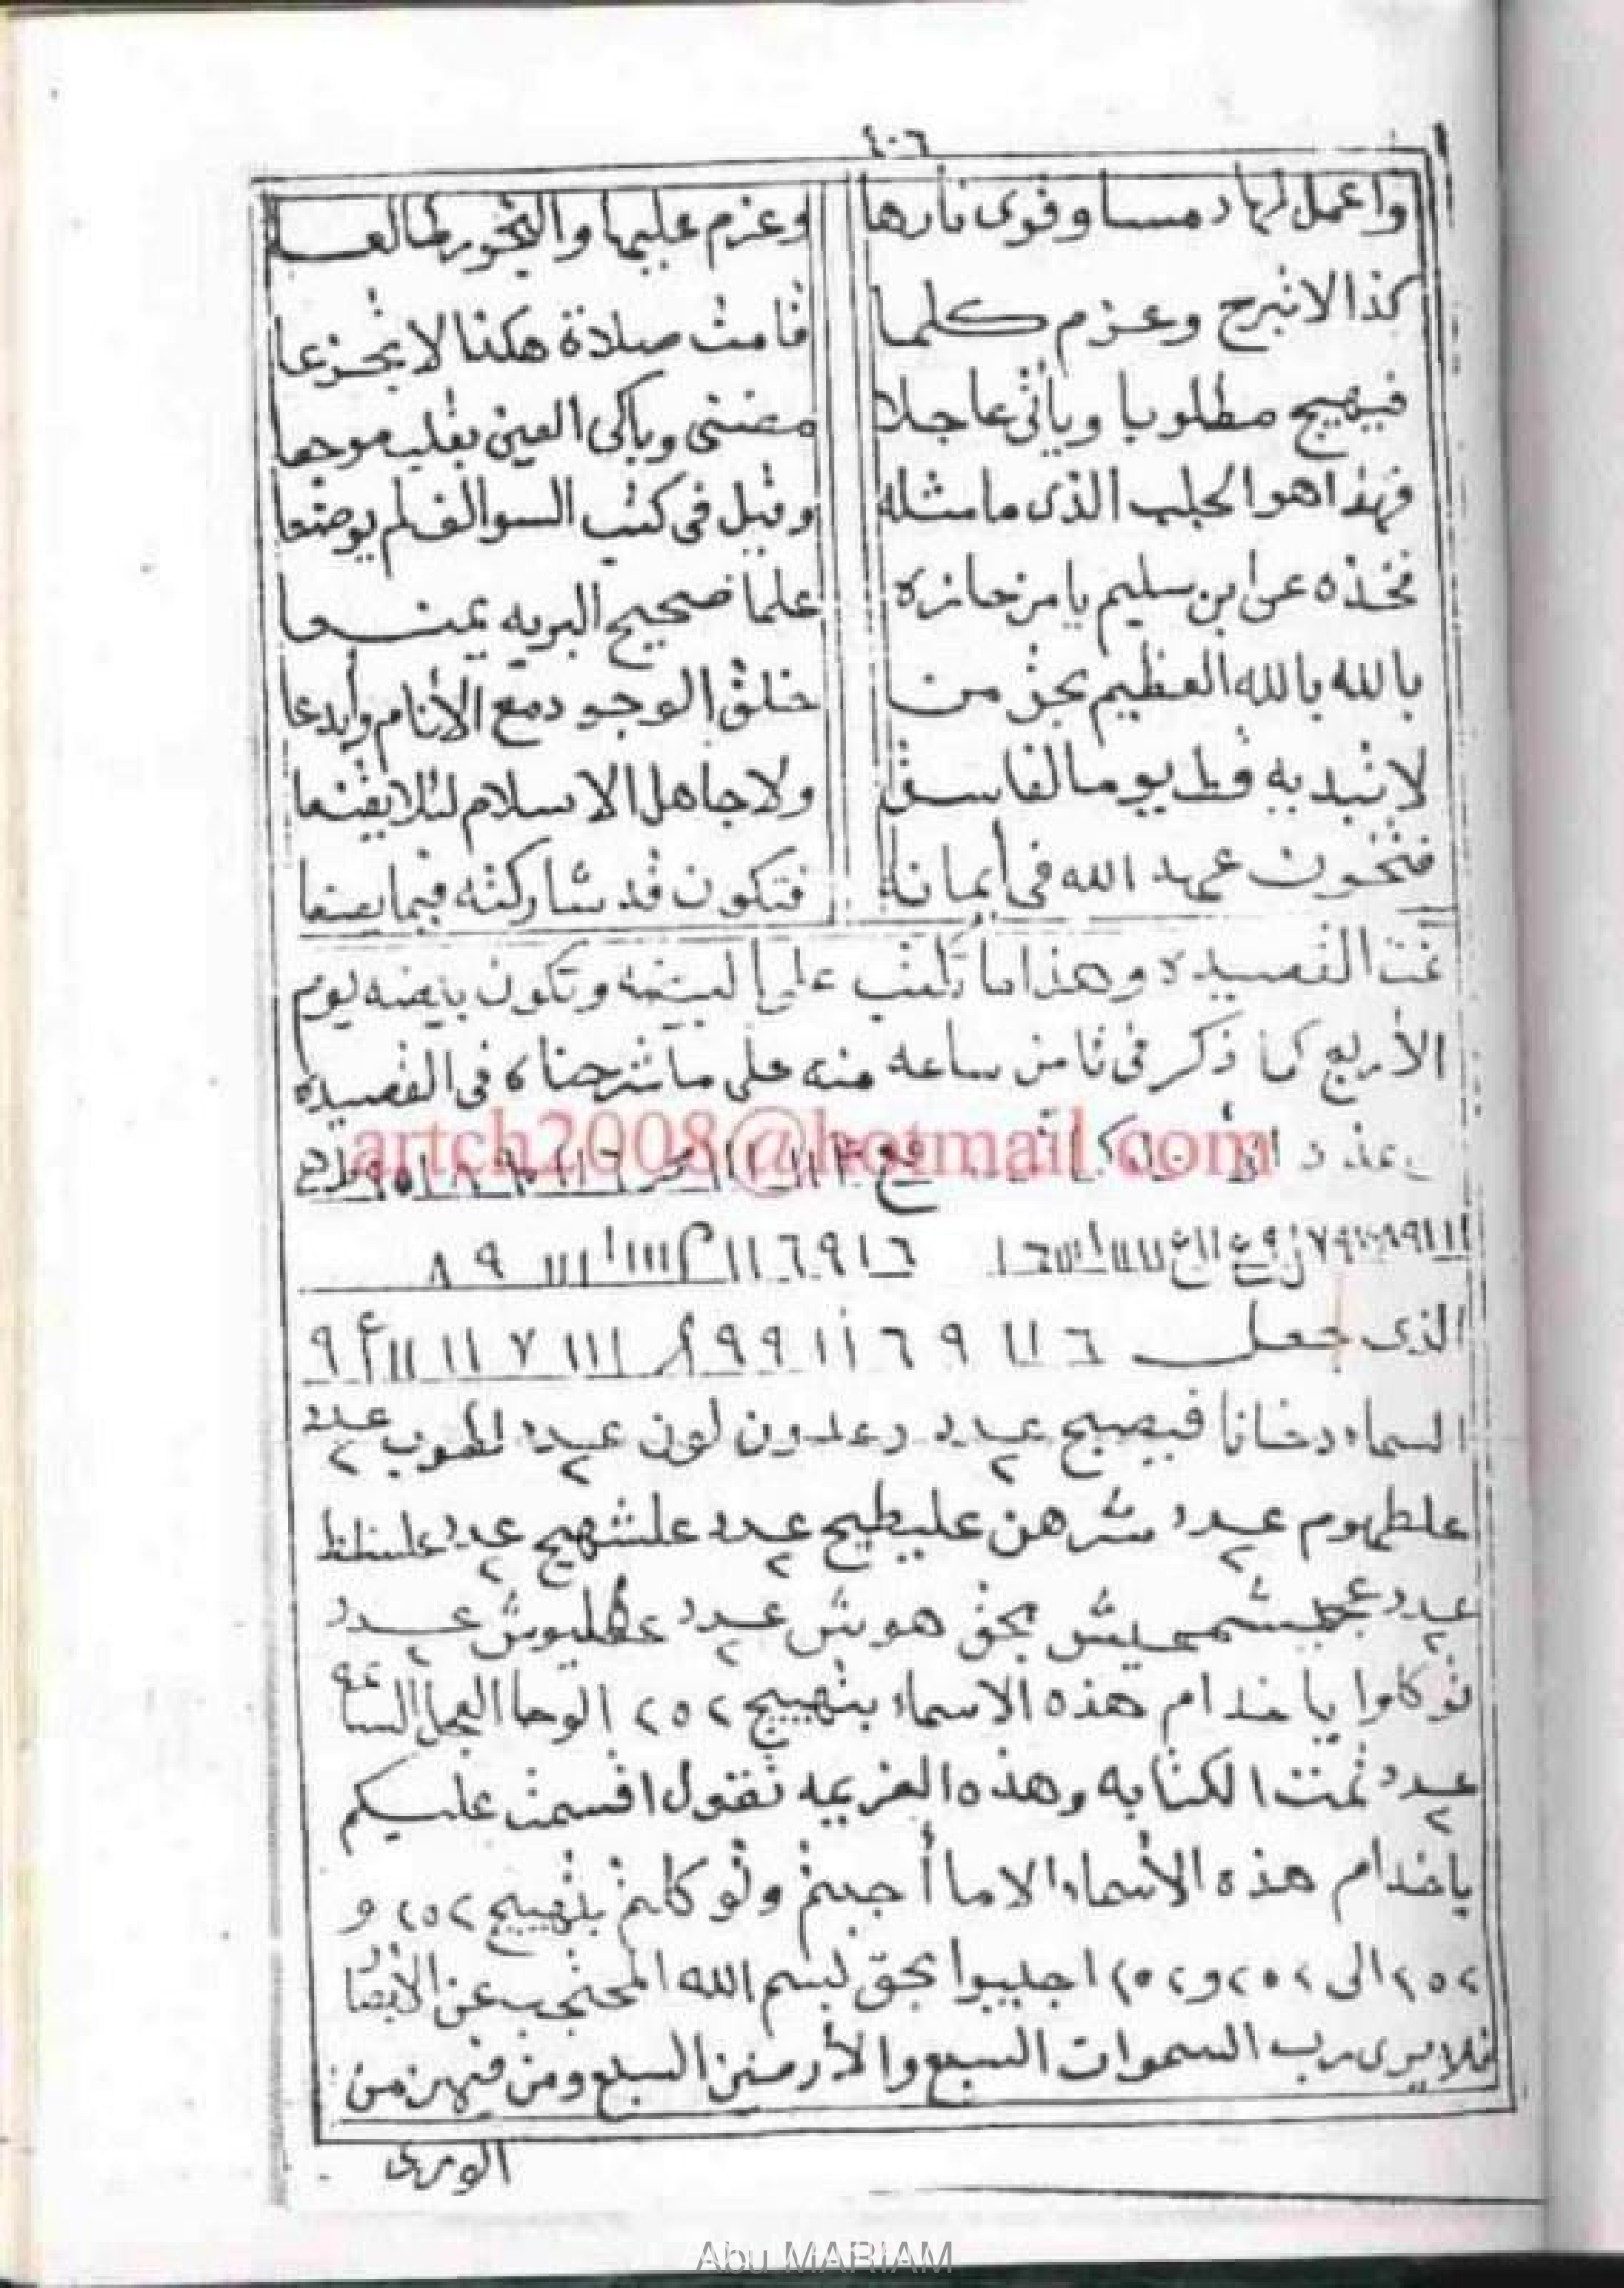 ٤٠٦
واعمل لها دمسا وقوى نارها وعزم عليها والبخور طالعا
كذا الابرج وعزم كلما قامت صلاة هكذا لا تجزعا
فيهيج مطلوبا ويأتى عاجلا مضنى وباكى العين بقلب موجعا
فهذا هو الجلب الذى ما مثله وقيل فى كتب السوالف لم يوضعا
فخذه عن ابن سليم يا من حازه علما صحيح البريه يمنعا
بالله بالله العظيم بحق من خلق الوجود مع الأنام وأبدعا
لا تبد به قط يوما لفاسق ولا جاهل الاسلام لئلا يفتعا
فتخون عهد الله فى أيماننا فتكون قد شاركته فيما يصنعا
تمت القصيده وهذا ما تكتب على البيضه وتكون بايضه يوم
الأربع كما ذكر فى ثامن ساعه منه على ما شرحناه فى القصيده
artch2008@hotmail.com
٦ ١ ٩ ٦ ١١ م ١١١١ ١١١ ٩ ٨
الذى جعل ٦ ١١ ٩ ٦ ١١ ٩ ٩ ١١١ ٧ ١١ ١١ ٩
السماء دخانا فيصبح عدد ٢ رعدون لون عدد ٢ عدد ٢
علطهوم عدد ٢ شرهن عليطيح عدد ٢ علشهيج عدد ٢
عدد ٢ بحق هوش عدد ٢ عطليوش عدد ٢
توكلوا يا خدام هذه الاسماء بتهييج ٢٥٢ الوحا العجل الساعه
عدد ٢ تمت الكتابه وهذه العزيمه تقول اقسمت عليكم
يا خدام هذه الأسماء الا ما أجبتم وتوكلتم بتهييج ٢٥٢ و
٢٥٢ الى ٢٥٢ و ٢٥٢ اجيبوا بحق بسم الله المحتجب عن الأبصار
فلا يرى رب السموات السبع والأرضين السبع ومن فيهن من
الورى
Abu MARIAM